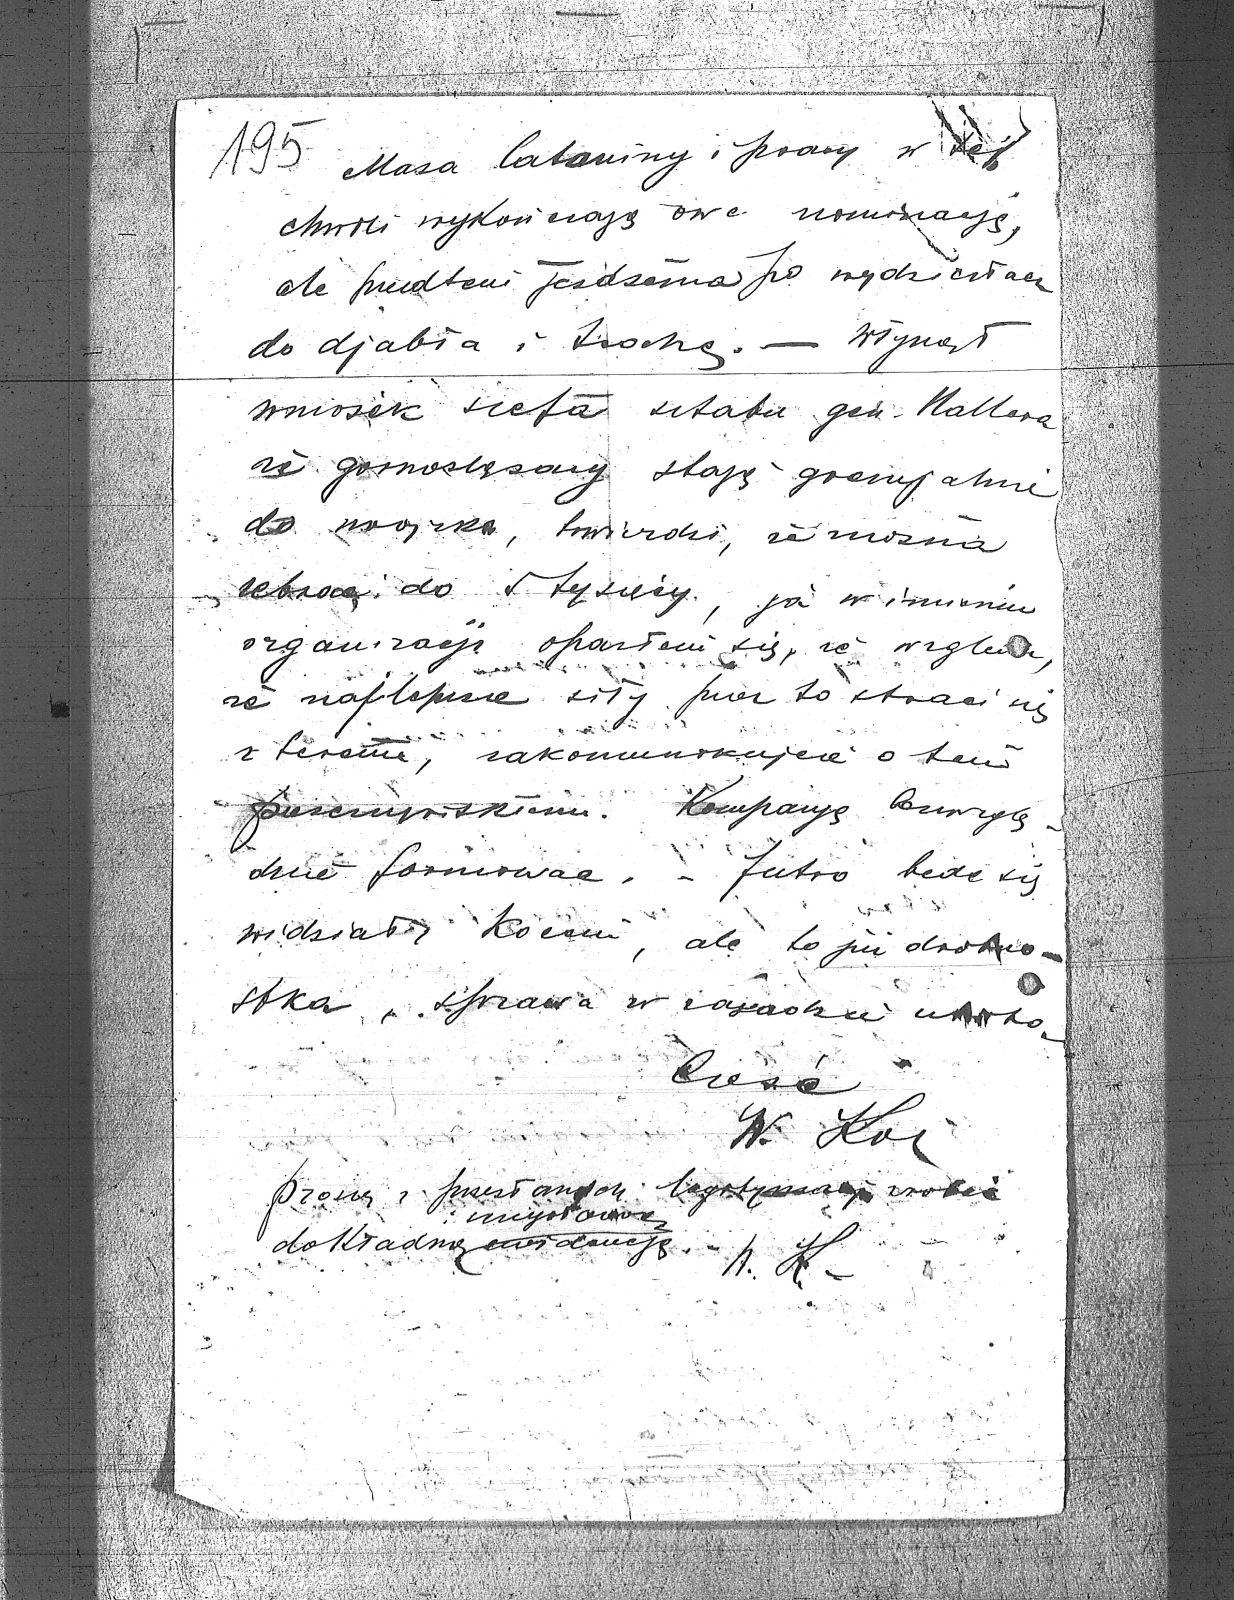 195
Masa lataniny i pracy w tej
chwili wykończają owe nominacje,
ale przedtem jeździłem po wydziałach
do djabła i trochę. — Włynął
wniosek szefa sztabu gen. Hallera
że gornoslązacy stają gremjalnie
do wojska, twierdzi, że można
zebrać do 5 tysięcy, ja w imieniu
organizacji oparłem się, ze względu,
że najlepsze siły przez to straci się
z terenu, zakomunikujcie o tem
Przemysław. Kompanję bezwzglę-
dnie formować. - Jutro będę się
widział z Kocem, ale to już drobno-
stka, sprawa w zasadzie
Cześć
W. Koz
Proszę z przesłanych legitymacji zrobić
i
dokładną ewidencję. - W. K.